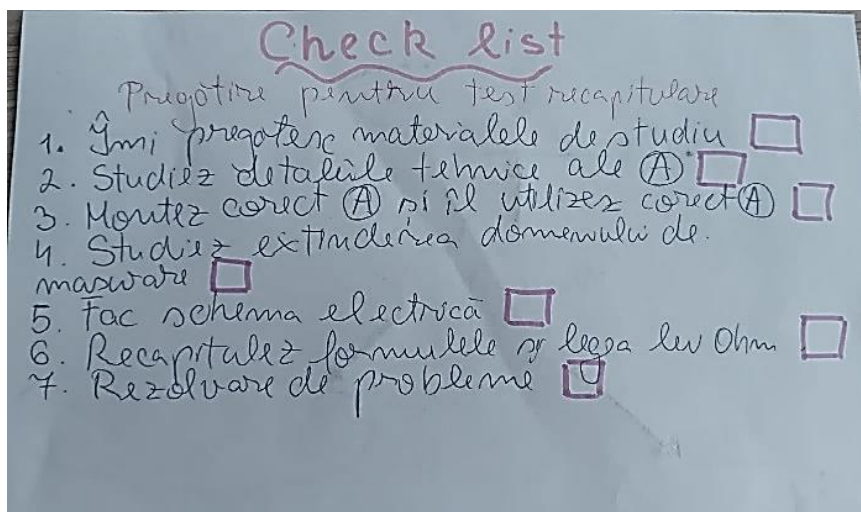 Check list
Pregătire pentru test recapitulare
1. Îmi pregătesc materialele de studiu
2. Studiez detaliile tehnice ale (A)
3. Montez corect (A) și îl utilizez corect (A)
4. Studiez extinderea domeniului de
masurare
5. Fac schema electrică
6. Recapitulez formulele și legea lui Ohm
7. Rezolvare de probleme